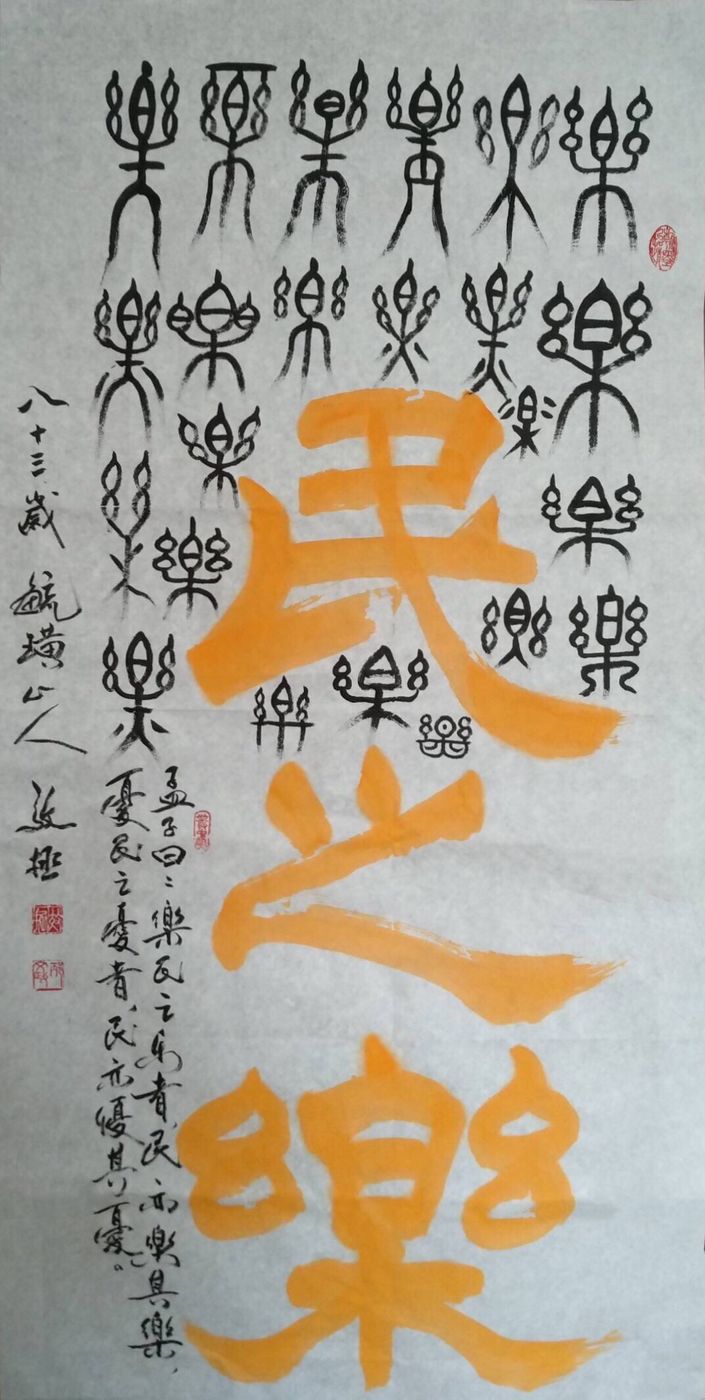 樂樂樂樂樂樂
樂樂樂樂樂樂
樂樂
樂樂樂
樂樂樂
樂樂樂樂
民之樂
孟子曰:樂民之乐者、民亦樂其樂、
憂民之憂者、民亦優其憂。
八十三歲 毓璜山人